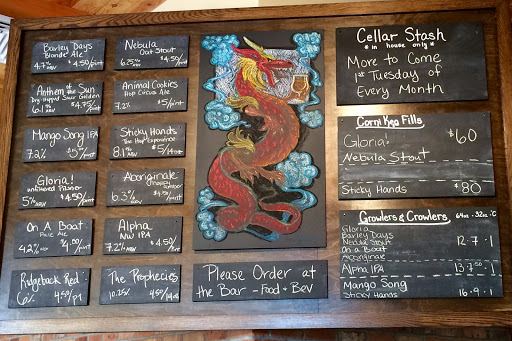 Barley Days
Blonde Ale
4.7% ABV $4.50/pint
Anthem of the Sun
Dry-Hopped Sour Golden
6.1% $4.75/pint
Mango Song IPA
7.2% $5/pint
Gloria!
unfiltered Pilsner
5% $4.50/pint
On A Boat
Pale Ale
4.2% $4.50/pint
Ridgeback Red
6% 4.50/pt
Nebula
Oat Stout
6.25% $4.50/pint
Animal Cookies
Hop Circus Ale
7.2% $5/pint
Sticky Hands
The Hop Experience
8.1% $5/14oz
Aboriginale
6.3% $4.50/pint
Alpha
NW IPA
7.2% $4.50/pint
The Prophecies
10.25% 4.50/14oz
Please Order at
the Bar - Food & Bev
Cellar Stash
* in house only *
More to Come
1st Tuesday of
Every Month
Corn Keg Fills
Gloria! $60
Nebula Stout
Sticky Hands $80
Growlers & Crowlers 64oz · 32oz · °C
Gloria
Barley Days
Nebula Stout 12 · 7 · 1
On a Boat
Aboriginale
Alpha IPA 13 · 7.50 · 1
Mango Song
Sticky Hands 16 · 9 · 1